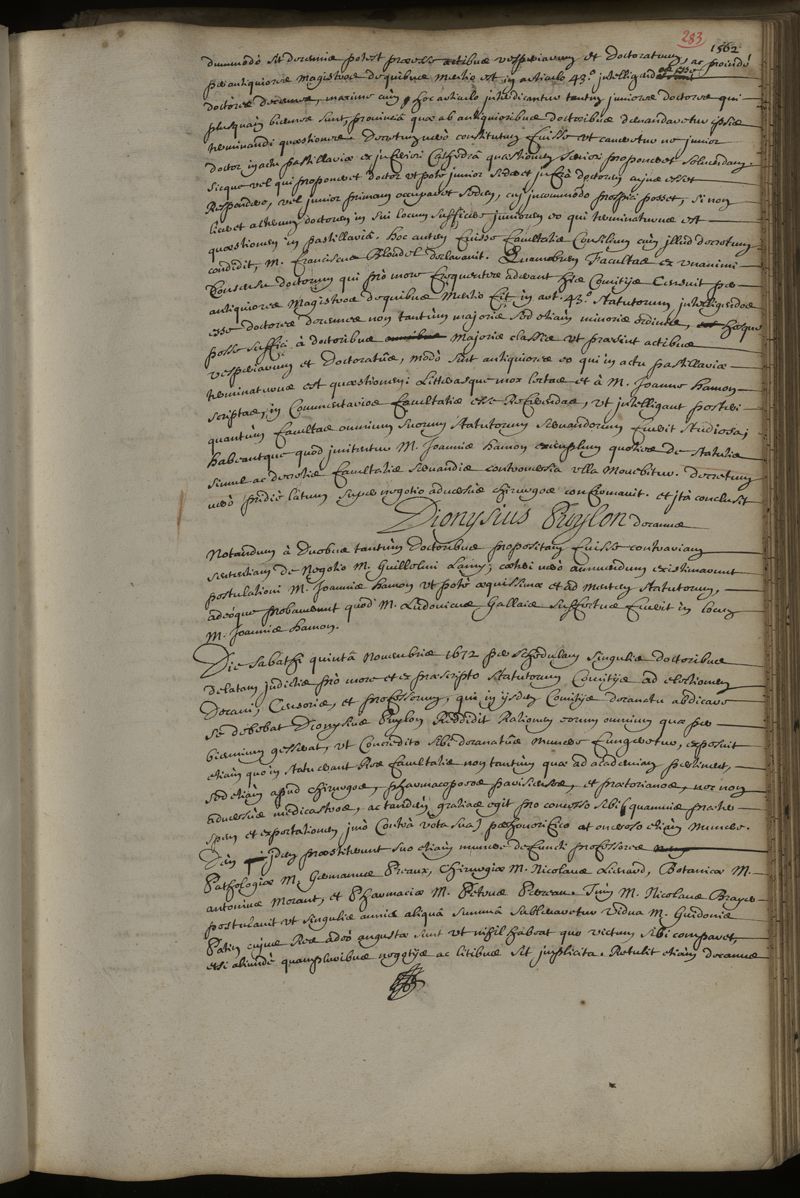 283
1562
dummodò sit decennis potest præesse actibus vesperiarum et Doctoratuum, ac proindè
per antiquiores Magistros de quibus mentio est in articulo 43.º intelligendos esse
doctores decennes, maxime cùm hoc articulo interdicantur tantùm juniores doctores qui
plusquàm biennes sunt, provinciâ quæ ab antiquioribus doctoribus demandaretur ipsis
terminandi quæstiones. Decretum verò constitutum fuisse ut caveretur ne junior
doctor in actu pastillariæ ex inferiori Cathedrâ quæstionem seniori proponeret solvendam.
sicque vel qui proponeret doctor ut potè junior sederet infrà doctorem cujus esset
Respondere, vel junior primam occuparet sedem, cui incommodo prospici posset, si non
liceret alterum doctorem in sui locum sufficere juniorem eo qui terminaturus est
quæstionem in pastillariâ. hoc autem fuisse Facultatis Consilium cùm illud decretum
condidit, M. Franciscus Blondel declaravit. Quamobrem Facultas ex unanimi
Consensu doctorum qui pro more frequentes aderant his Comitiis Censuit per
antiquiores Magistros de quibus mentio fit in art. 43.º statutorum intelligendos
esse doctores decennes non tantùm majoris sed etiam minoris ordinis, hosque
posse suffici à doctoribus majoris classis ut præsint actibus
vesperiarum et Doctoratûs, modò sint antiquiores eo qui in actu pastillariæ
terminaturus est quæstionem; Litterasque mox lectas et à M. Joanne hamon
scriptas, in Commentarios Facultatis esse Referendas, ut intelligant posteri
quantùm Facultas omnium suorum statutorum servandorum fuerit studiosa;
habeantque quod imitentur M. Joannis hamon exemplum quoties de statutis
simul ac decretis Facultatis servandis controversia ulla movebitur. Decretum
verò pridiè latum super negotio adversus chirurgos confirmavit. et ità conclusit
Dionysius Puylon decanus
Notandum à Duobus tantùm doctoribus propositam fuisse contrariam
sententiam de Negotio M. Guillelmi Lamy, cæteri verò annuendum existimarunt
postulationi M. Joannis hamon ut potè æquissimæ et ad mentem statutorum,
adeòque probaverunt quòd M. Ludovicus Gallais suffectus fuerit in locum
M. Joannis hamon.
Die sabathi quintâ Novembris 1672 per schedulam singulis doctoribus
delatam indictis pro more et ex præscripto statutorum Comitiis ad electionem
Decani, Censoris, et professorum, qui in iisdem Comitiis decanatu abdicare
se debebat Dionysius Puylon Reddidit Rationem eorum omnium quæ per
biennium gesserat, ut Concredito sibi decanatûs munere fungeretur, exposuit
etiam quo in statu erant Res Facultatis non tantùm quæ ad academiam pertinent,
sed etiam apud chirurgos, pharmacopoeos parisienses, et prætorianos, nec non
adversùs medicastros, ac tandem gratias egit pro converso sibi (quamvis præter
spem et expectationem imò Contrà vota sua) perhonorifico at oneroso etiam munere.
Dein Idem præstiterunt suo etiam munere defuncti professores
Pathologiæ M. Germanus Preaux, Chirurgiæ M. Nicolaus Lienard, Botanices M.
antonius Morant, et Pharmaciæ M. Petrus Perreau. Tum M. Nicolaus Brayer
postulavit ut singulis annis aliquâ summâ sublevaretur vidua M. Guidonis
Patin cujus Res adeò angustæ sunt ut nihil habeat quo victum sibi comparet,
etsi aliundè quampluribus negotiis ac litibus sit implicita. Retulit etiam decanus